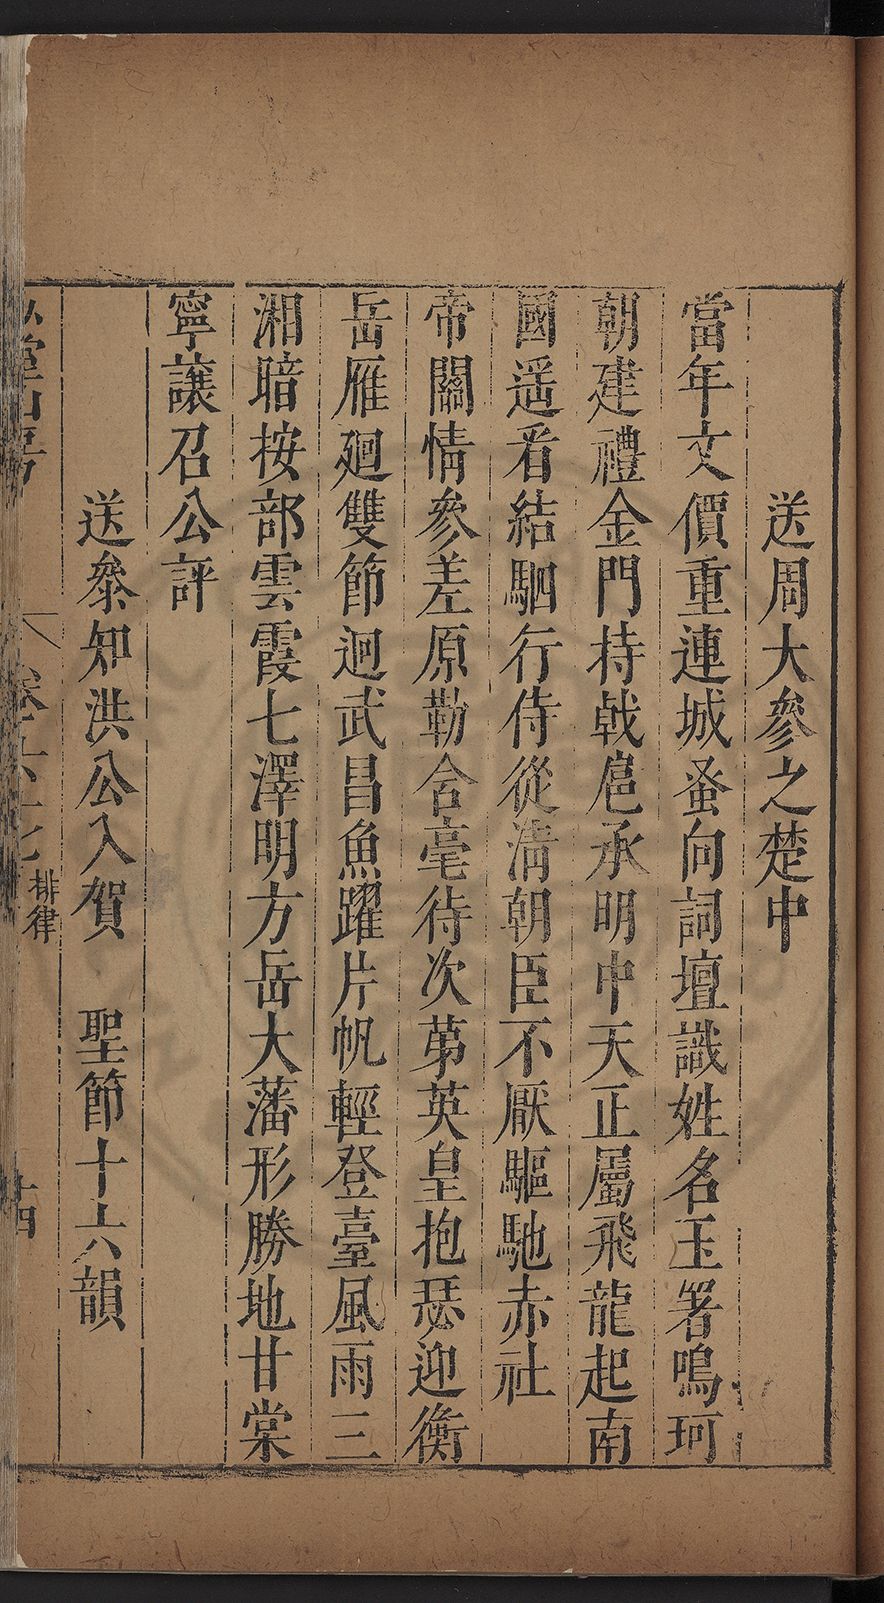 送周大參之楚中
當年文價重連城蚤向詞壇識姓名玉署鳴珂
朝建禮金門持戟扈承明中天正屬飛龍起南
國遥看結駟行侍從清朝臣不厭驅馳赤社
帝關情參差原勒含毫待次苐英皇抱瑟迎衡
岳雁廻雙節迴武昌魚躍片帆輕登臺風雨三
湘暗按部雲霞七澤明方岳大藩形勝地甘棠
寧讓召公評
送叅知洪公入賀 聖節十六韻
排律